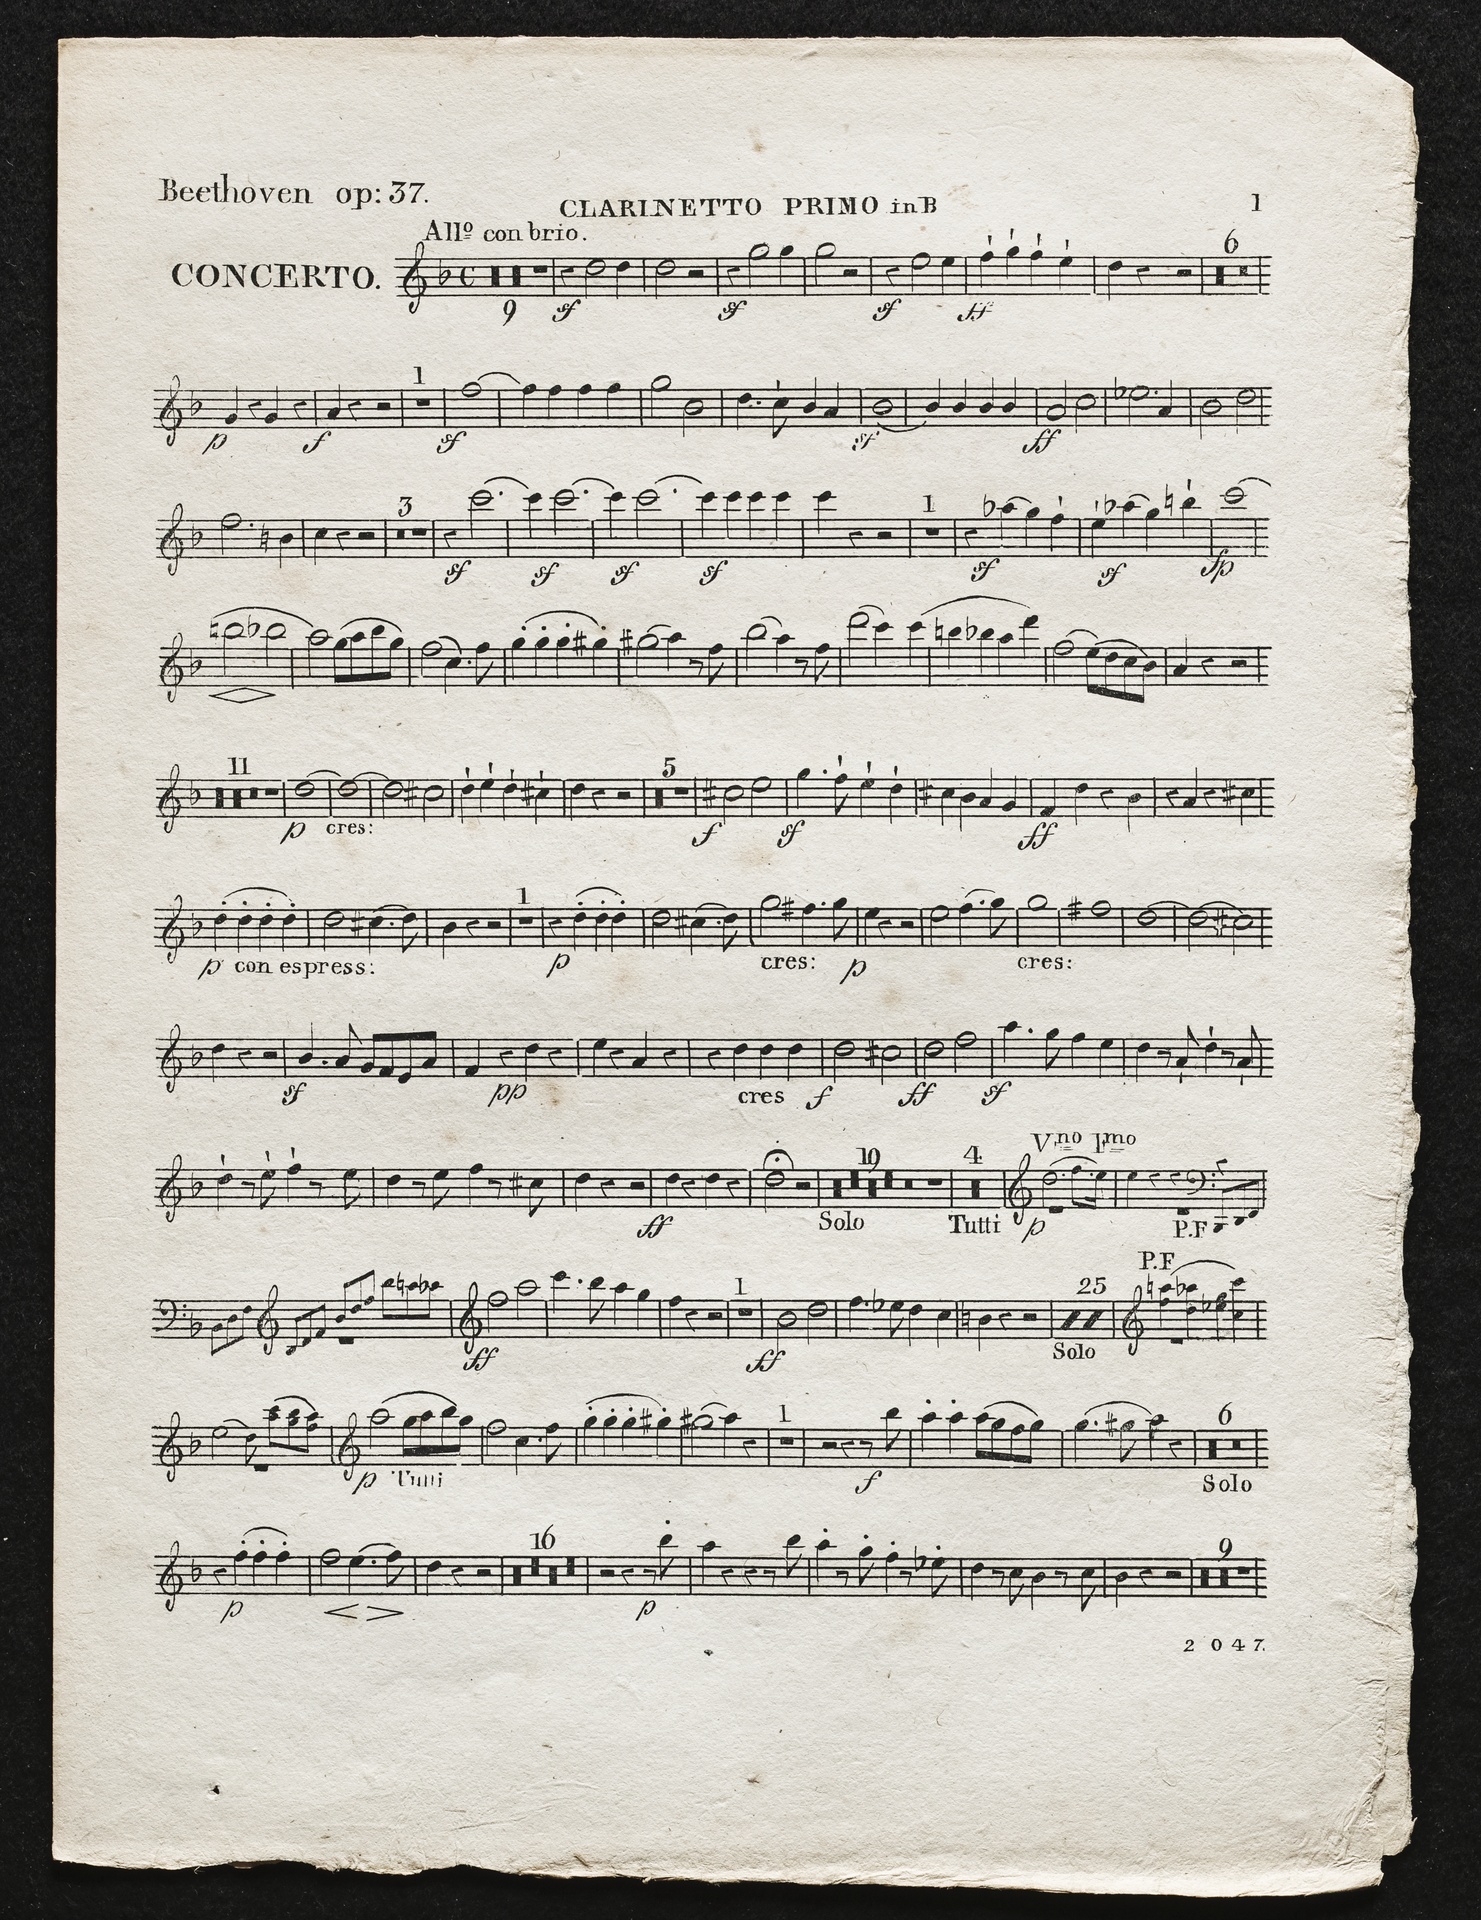 Beethoven op: 37.
CLARINETTO PRIMO in B
1
Allº con brio.
CONCERTO.
6
9 sf sf sf ff
1
p f sf sf ff
3 1
sf sf sf sf sf sf fp
11 5
p cres: f sf ff
1
p con espress: p cres: p cres:
sf pp cres f ff sf
Vno Imo
19 4
ff Solo Tutti p P.F
P.F
1 25
ff ff Solo
1 6
p Tutti f Solo
16 9
p p
2047.